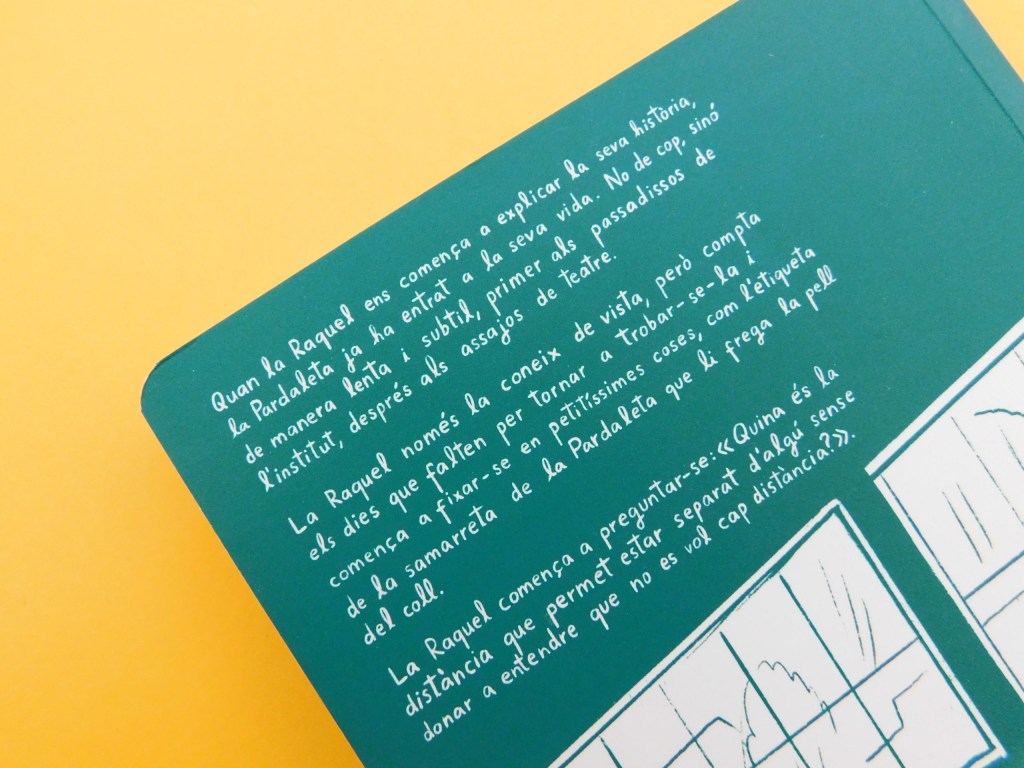 Quan la Raquel ens comença a explicar la seva història,
la Pardaleta ja ha entrat a la seva vida. No de cop, sinó
de manera lenta i subtil, primer als passadissos de
l'institut, després als assajos de teatre.
La Raquel només la coneix de vista, però compta
els dies que falten per tornar a trobar-se-la i
comença a fixar-se en petitíssimes coses, com l'etiqueta
de la samarreta de la Pardaleta que li frega la pell
del coll.
La Raquel comença a preguntar-se: «Quina és la
distància que permet estar separat d'algú sense
donar a entendre que no es vol cap distància?».